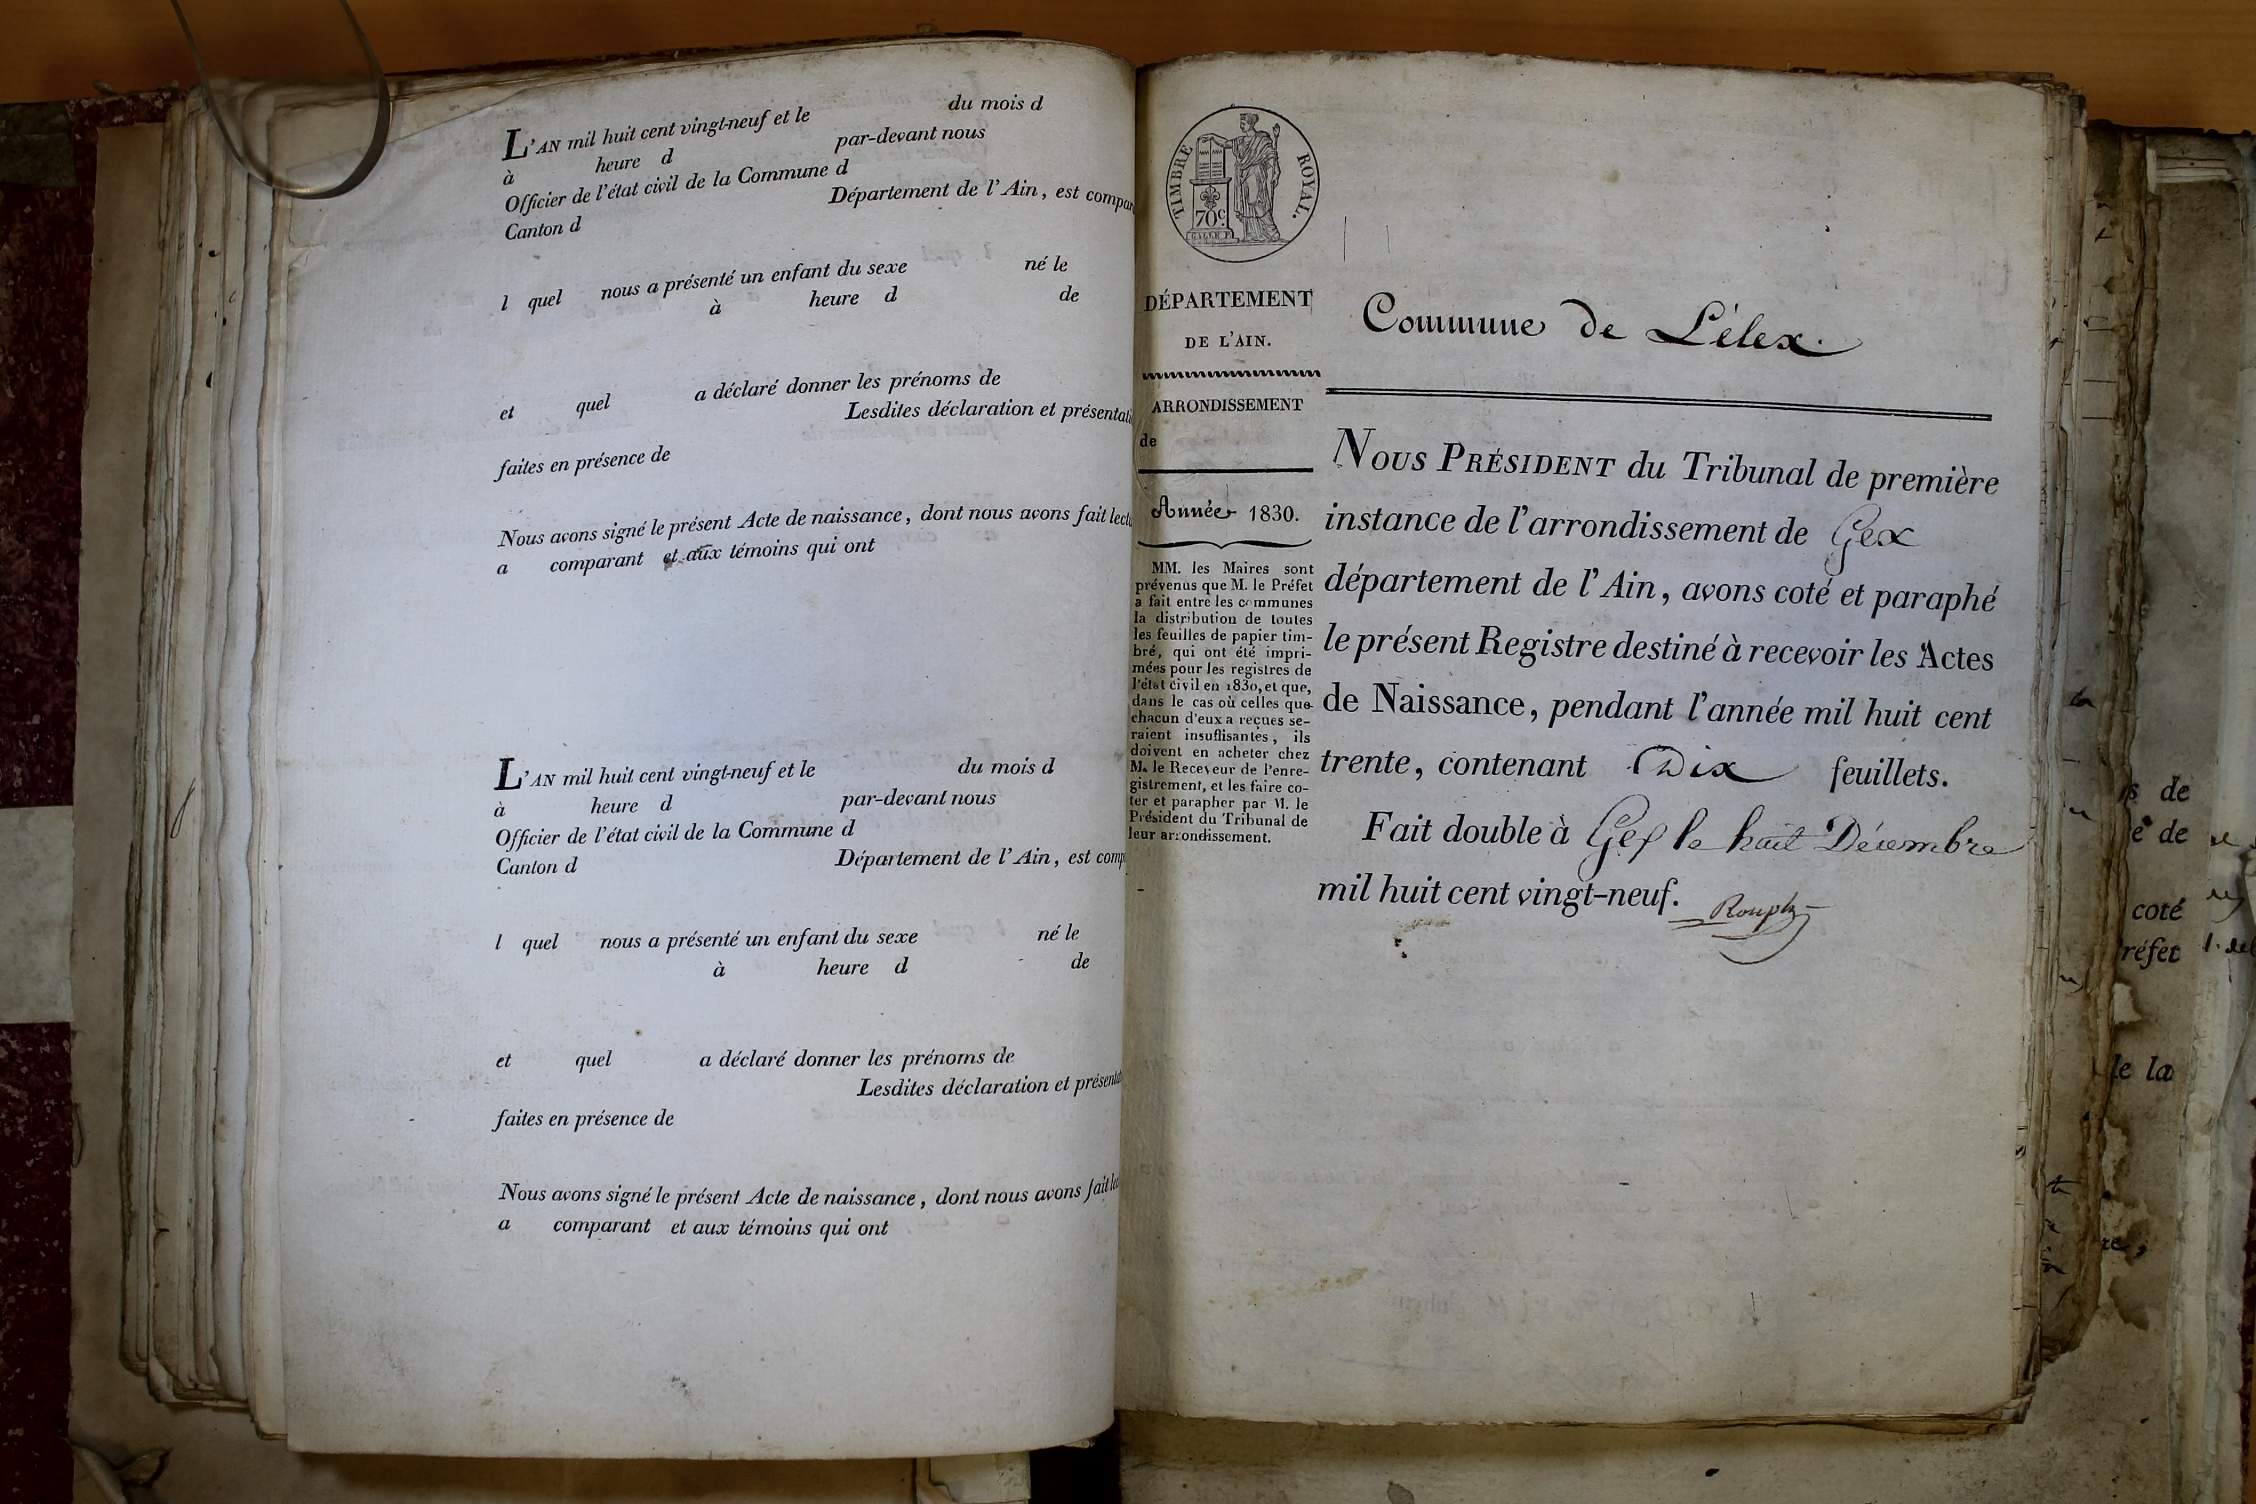 L'AN mil huit cent vingt-neuf et le du mois d
à heure d par-devant nous
Officier de l'état civil de la Commune d
Canton d Département de l'Ain, est compar
l quel nous a présenté un enfant du sexe né le
à heure d de
et quel a déclaré donner les prénoms de
Lesdites déclaration et présentati
faites en présence de
Nous avons signé le présent Acte de naissance, dont nous avons fait lectu
a comparant et aux témoins qui ont
L'AN mil huit cent vingt-neuf et le du mois d
à heure d par-devant nous
Officier de l'état civil de la Commune d
Canton d Département de l'Ain, est comp
l quel nous a présenté un enfant du sexe né le
à heure d de
et quel a déclaré donner les prénoms de
Lesdites déclaration et présentat
faites en présence de
Nous avons signé le présent Acte de naissance, dont nous avons fait lec
a comparant et aux témoins qui ont
TIMBRE ROYAL.
70c.
DÉPARTEMENT
DE L'AIN.
ARRONDISSEMENT
de
Année 1830.
MM. les Maires sont
prévenus que M. le Préfet
a fait entre les communes
la distribution de toutes
les feuilles de papier tim-
bré, qui ont été impri-
mées pour les registres de
l'état civil en 1830, et que,
dans le cas où celles que
chacun d'eux a reçues se-
raient insuffisantes, ils
doivent en acheter chez
M. le Receveur de l'enre-
gistrement, et les faire co-
ter et parapher par M. le
Président du Tribunal de
leur arrondissement.
Commune de Lélex.
NOUS PRÉSIDENT du Tribunal de première
instance de l'arrondissement de Gex
département de l'Ain, avons coté et paraphé
le présent Registre destiné à recevoir les Actes
de Naissance, pendant l'année mil huit cent
trente, contenant Dix feuillets.
Fait double à Gex le huit Décembre
mil huit cent vingt-neuf.
de
e de
coté
réfet
le la